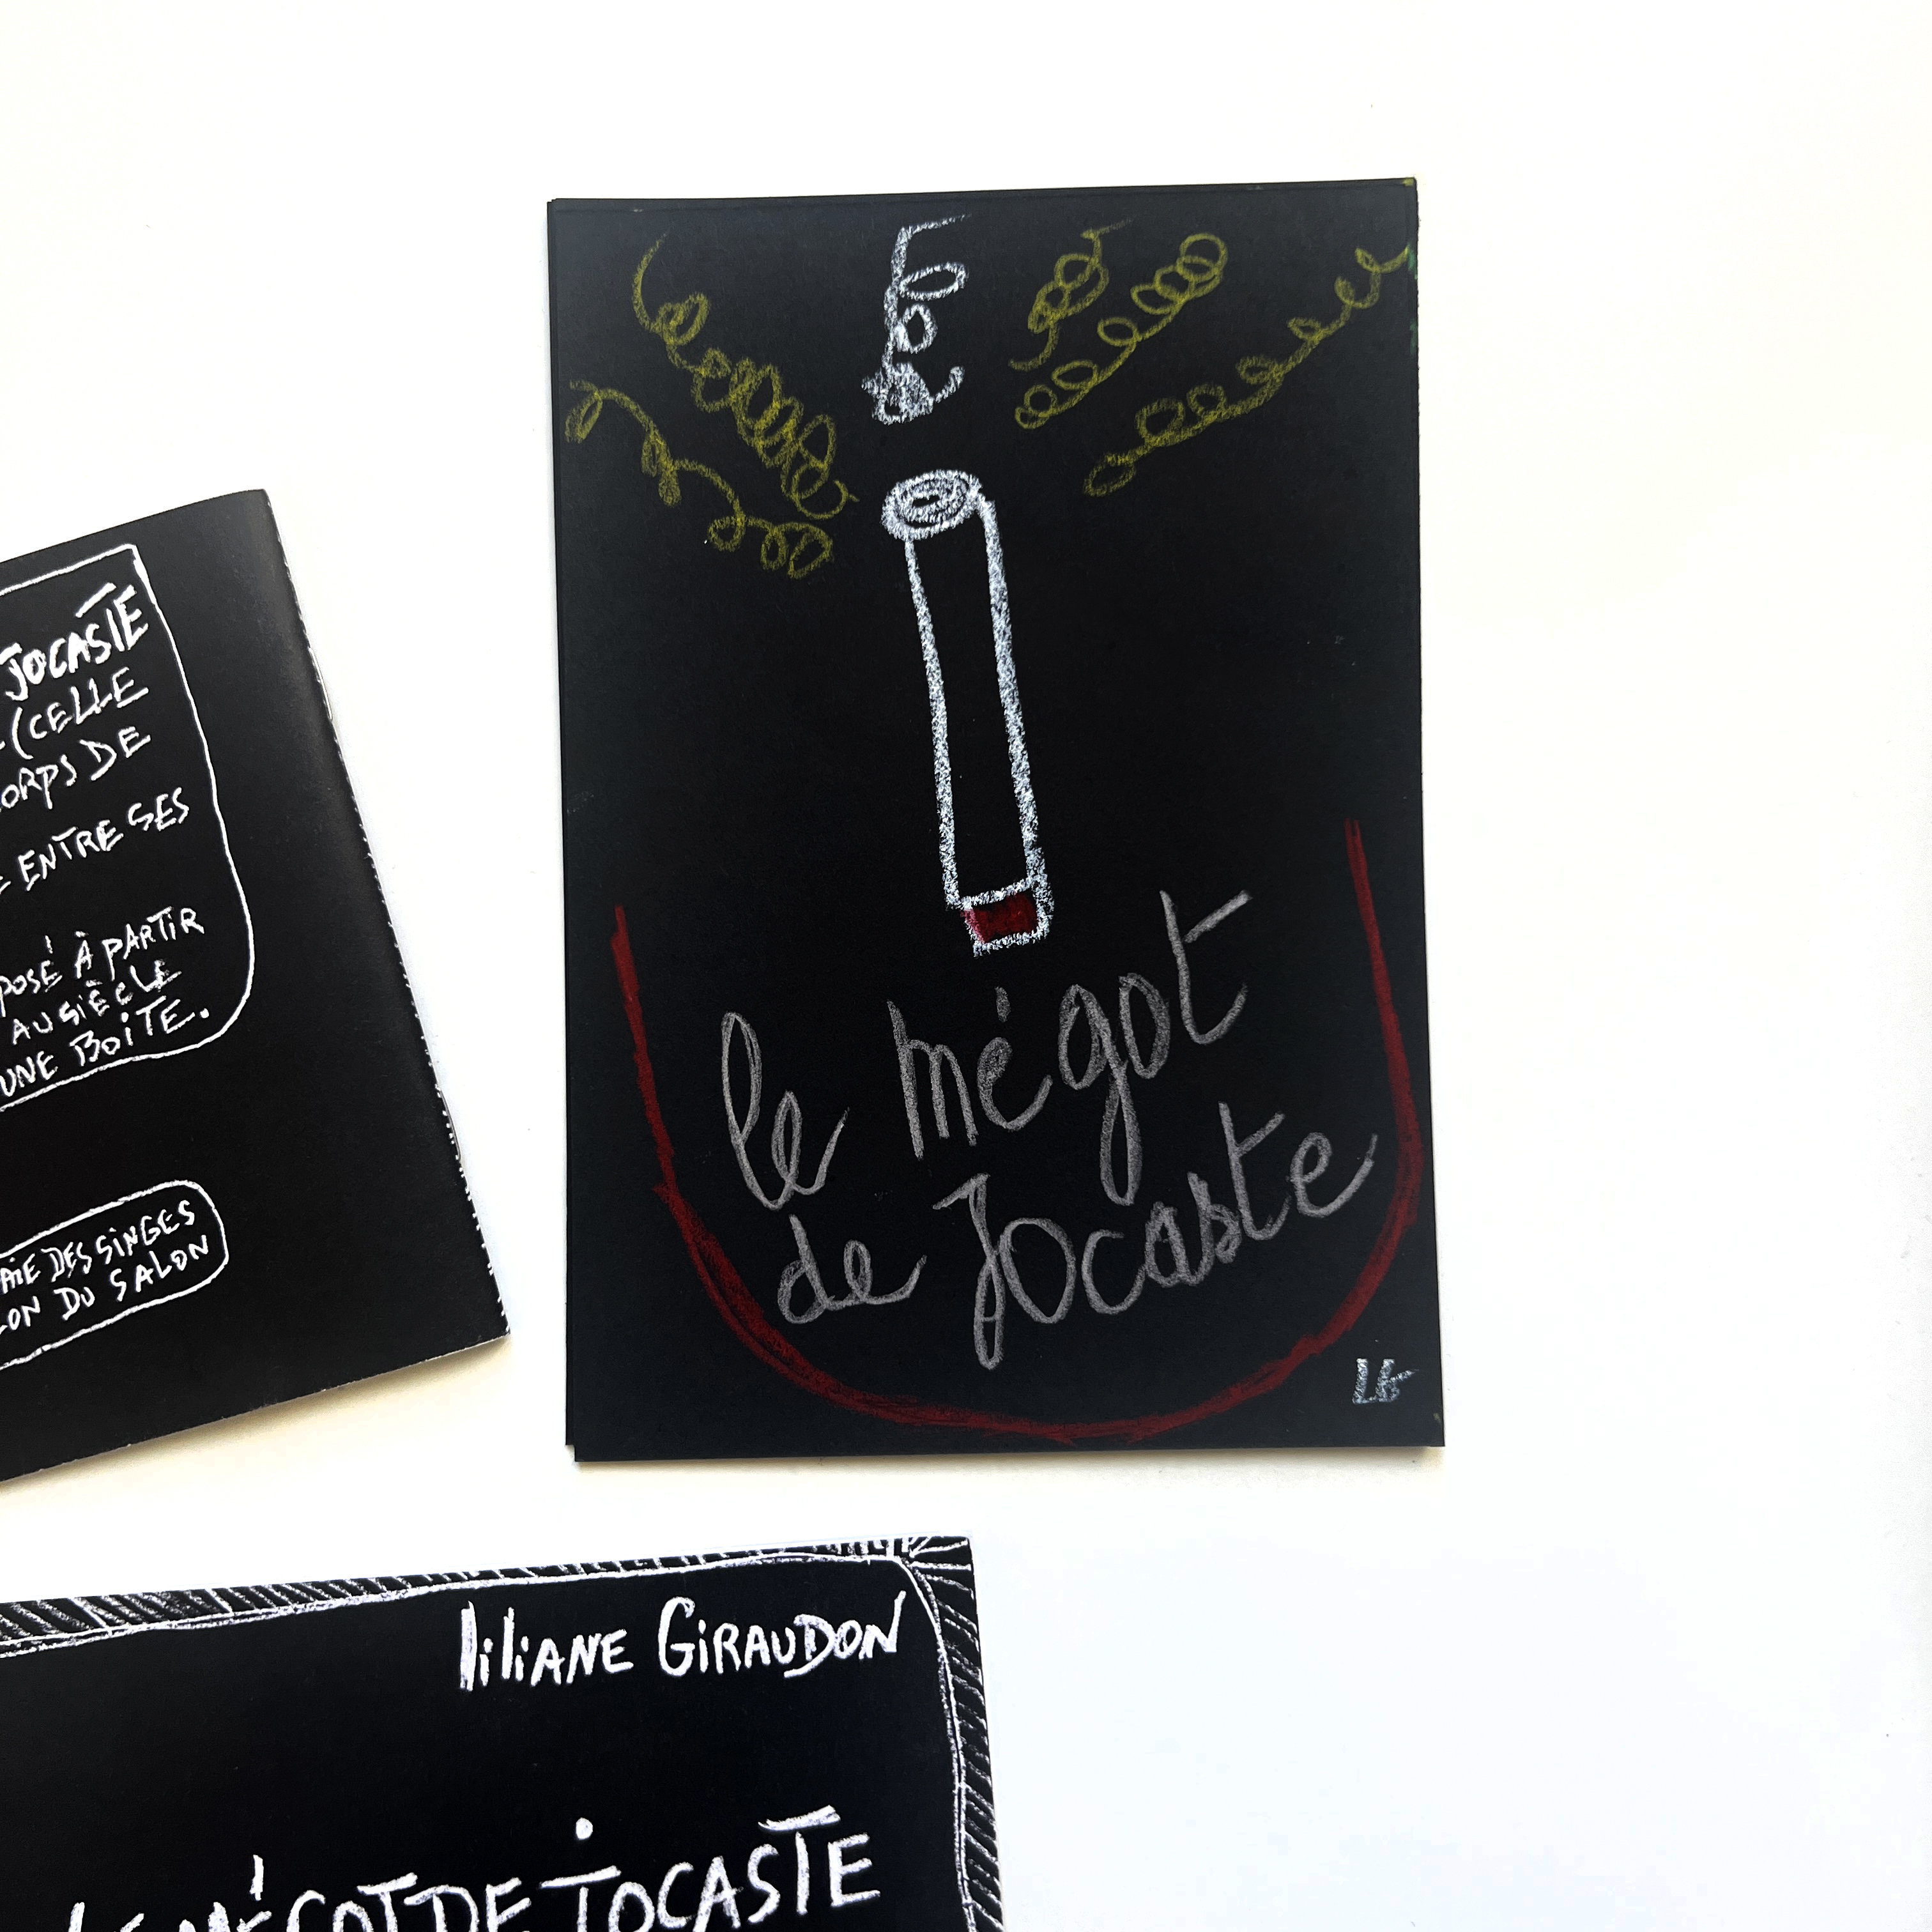 le mégot
de Jocaste
LG
JOCASTE
(CELLE
CORPS DE
ENTRE SES
POSÉ À PARTIR
AU SIÈCLE
UNE BOITE.
DES SINGES
DU SALON
liliANE GiRAUDON
LE MÉGOT DE JOCASTE